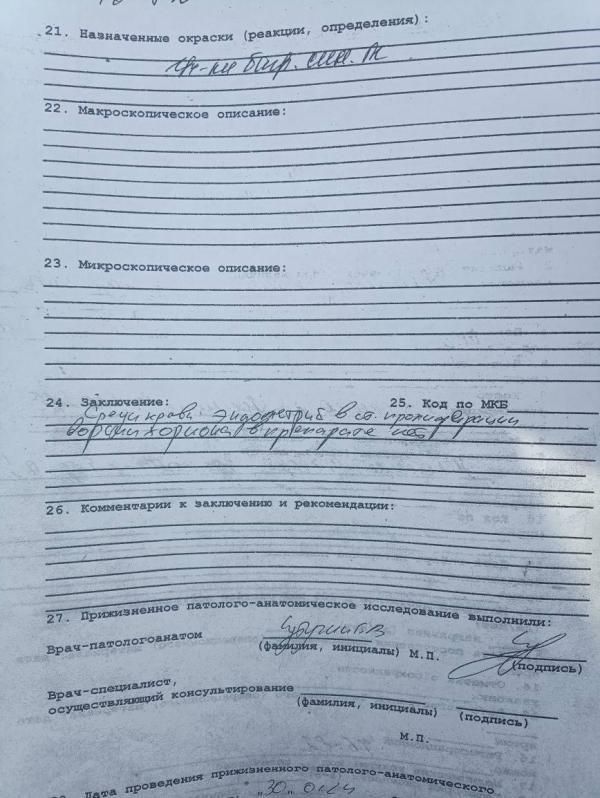 21. Назначенные окраски (реакции, определения):
22. Макроскопическое описание:
23. Микроскопическое описание:
24. Заключение: 25. Код по МКБ
Среди крови эндометрий в ст. пролиферации
ворсин хориона в препарате нет
26. Комментарии к заключению и рекомендации:
27. Прижизненное патолого-анатомическое исследование выполнили:
Врач-патологоанатом
(фамилия, инициалы) М.П. (подпись)
Врач-специалист,
осуществляющий консультирование
(фамилия, инициалы) (подпись)
М.П.
Дата проведения прижизненного патолого-анатомического
"30"